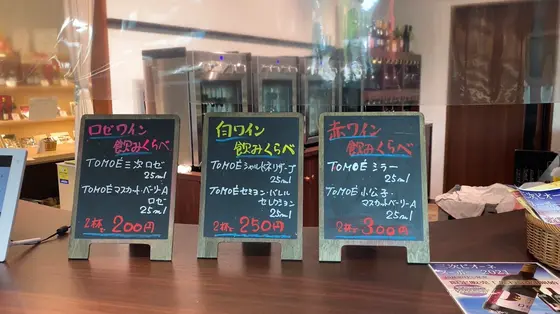 ロゼワイン
飲みくらべ
TOMOÉ 三次 ロゼ
25ml
TOMOÉ マスカット・ベーリーA
ロゼ
25ml
2杯で 200円
白ワイン
飲みくらべ
TOMOÉ シャルドネ リザーブ
25ml
TOMOÉ セミヨン・バレル
セレクション
25ml
2杯で 250円
赤ワイン
飲みくらべ
TOMOÉ ミラー
25ml
TOMOÉ 小公子・
マスカット・ベリーA
25ml
2杯で 300円
三次ピオーネ
2021